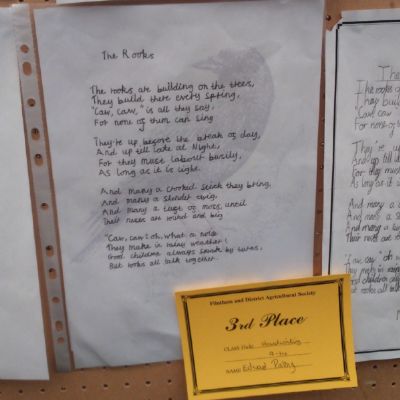 The Rooks
The rooks are building on the trees,
They build there every spring,
"Caw, caw," is all they say,
For none of them can sing
They're up before the break of day,
And up till late at Night,
For they must labour busily,
As long as it is light.
And many a crooked stick they bring,
And many a slender twig,
And many a tuft of moss, until
Their nests are round and big
"Caw, caw! oh, what a noise
They make in rainy weather!
Good children always speak by turns,
But rooks all talk together.
Flintham and District Agricultural Society
3rd Place
CLASS Handwriting
NAME Edward
The
The rooks a
They build
"Caw, caw
For none of
They're up
And up till
For they must
As long as it is
And many a c
And many a
Their nests are
"Caw, caw! oh wh
They make in rain
Good children al